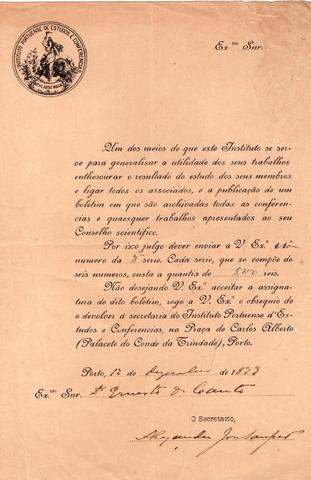 INSTITUTO PORTUENSE DE ESTUDOS E CONFERENCIAS
Ex.mo Snr.
Um dos meios de que este Instituto se ser-
ve para generalisar a utilidade dos seus trabalhos
enthesourar o resultado do estudo dos seus membros
e ligar todos os associados, é a publicação de um
boletim em que são archivadas todas as conferen-
cias e quaesquer trabalhos apresentados ao seu
Conselho scientifico.
Por isso julgo dever enviar a V. Ex.ª
numero da serie. Cada serie, que se compõe de
seis numeros, custa a quantia de 500 reis.
Não desejando V. Ex.ª acceitar a assigna-
tura do dito boletim, rogo a V. Ex.ª o obsequio de
o devolver á secretaria do Instituto Portuense d'Es-
tudos e Conferencias, na Praça de Carlos Alberto
(Palacete do Conde da Trindade), Porto.
Porto, 12 de Dezembro de
Ex.mo Snr. Dr Ernesto do Canto
O Secretario,